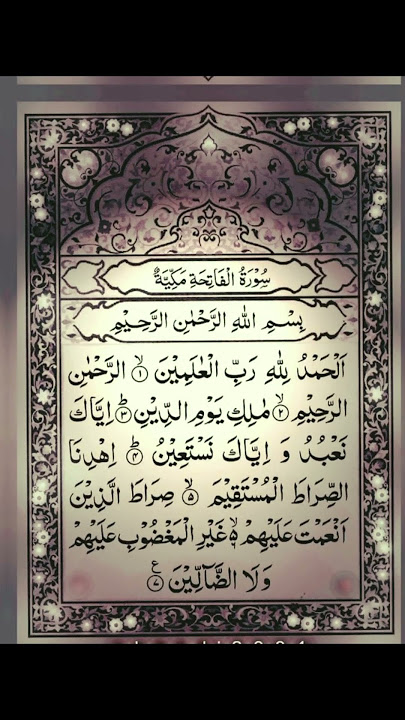 سُوْرَةُ الْفَاتِحَةِ مَكِّيَّةٌ
بِسْمِ اللهِ الرَّحْمٰنِ الرَّحِيْمِ
اَلْحَمْدُ لِلّٰهِ رَبِّ الْعٰلَمِيْنَ ۙ﴿۱﴾ الرَّحْمٰنِ
الرَّحِيْمِ ۙ﴿۲﴾ مٰلِكِ يَوْمِ الدِّيْنِ ؕ﴿۳﴾ اِيَّاكَ
نَعْبُدُ وَ اِيَّاكَ نَسْتَعِيْنُ ؕ﴿۴﴾ اِهْدِنَا
الصِّرَاطَ الْمُسْتَقِيْمَ ۙ﴿۵﴾ صِرَاطَ الَّذِيْنَ
اَنْعَمْتَ عَلَيْهِمْ ۙ۬﴿۶﴾ غَيْرِ الْمَغْضُوْبِ عَلَيْهِمْ
وَلَا الضَّآلِّيْنَ ﴿۷﴾ع